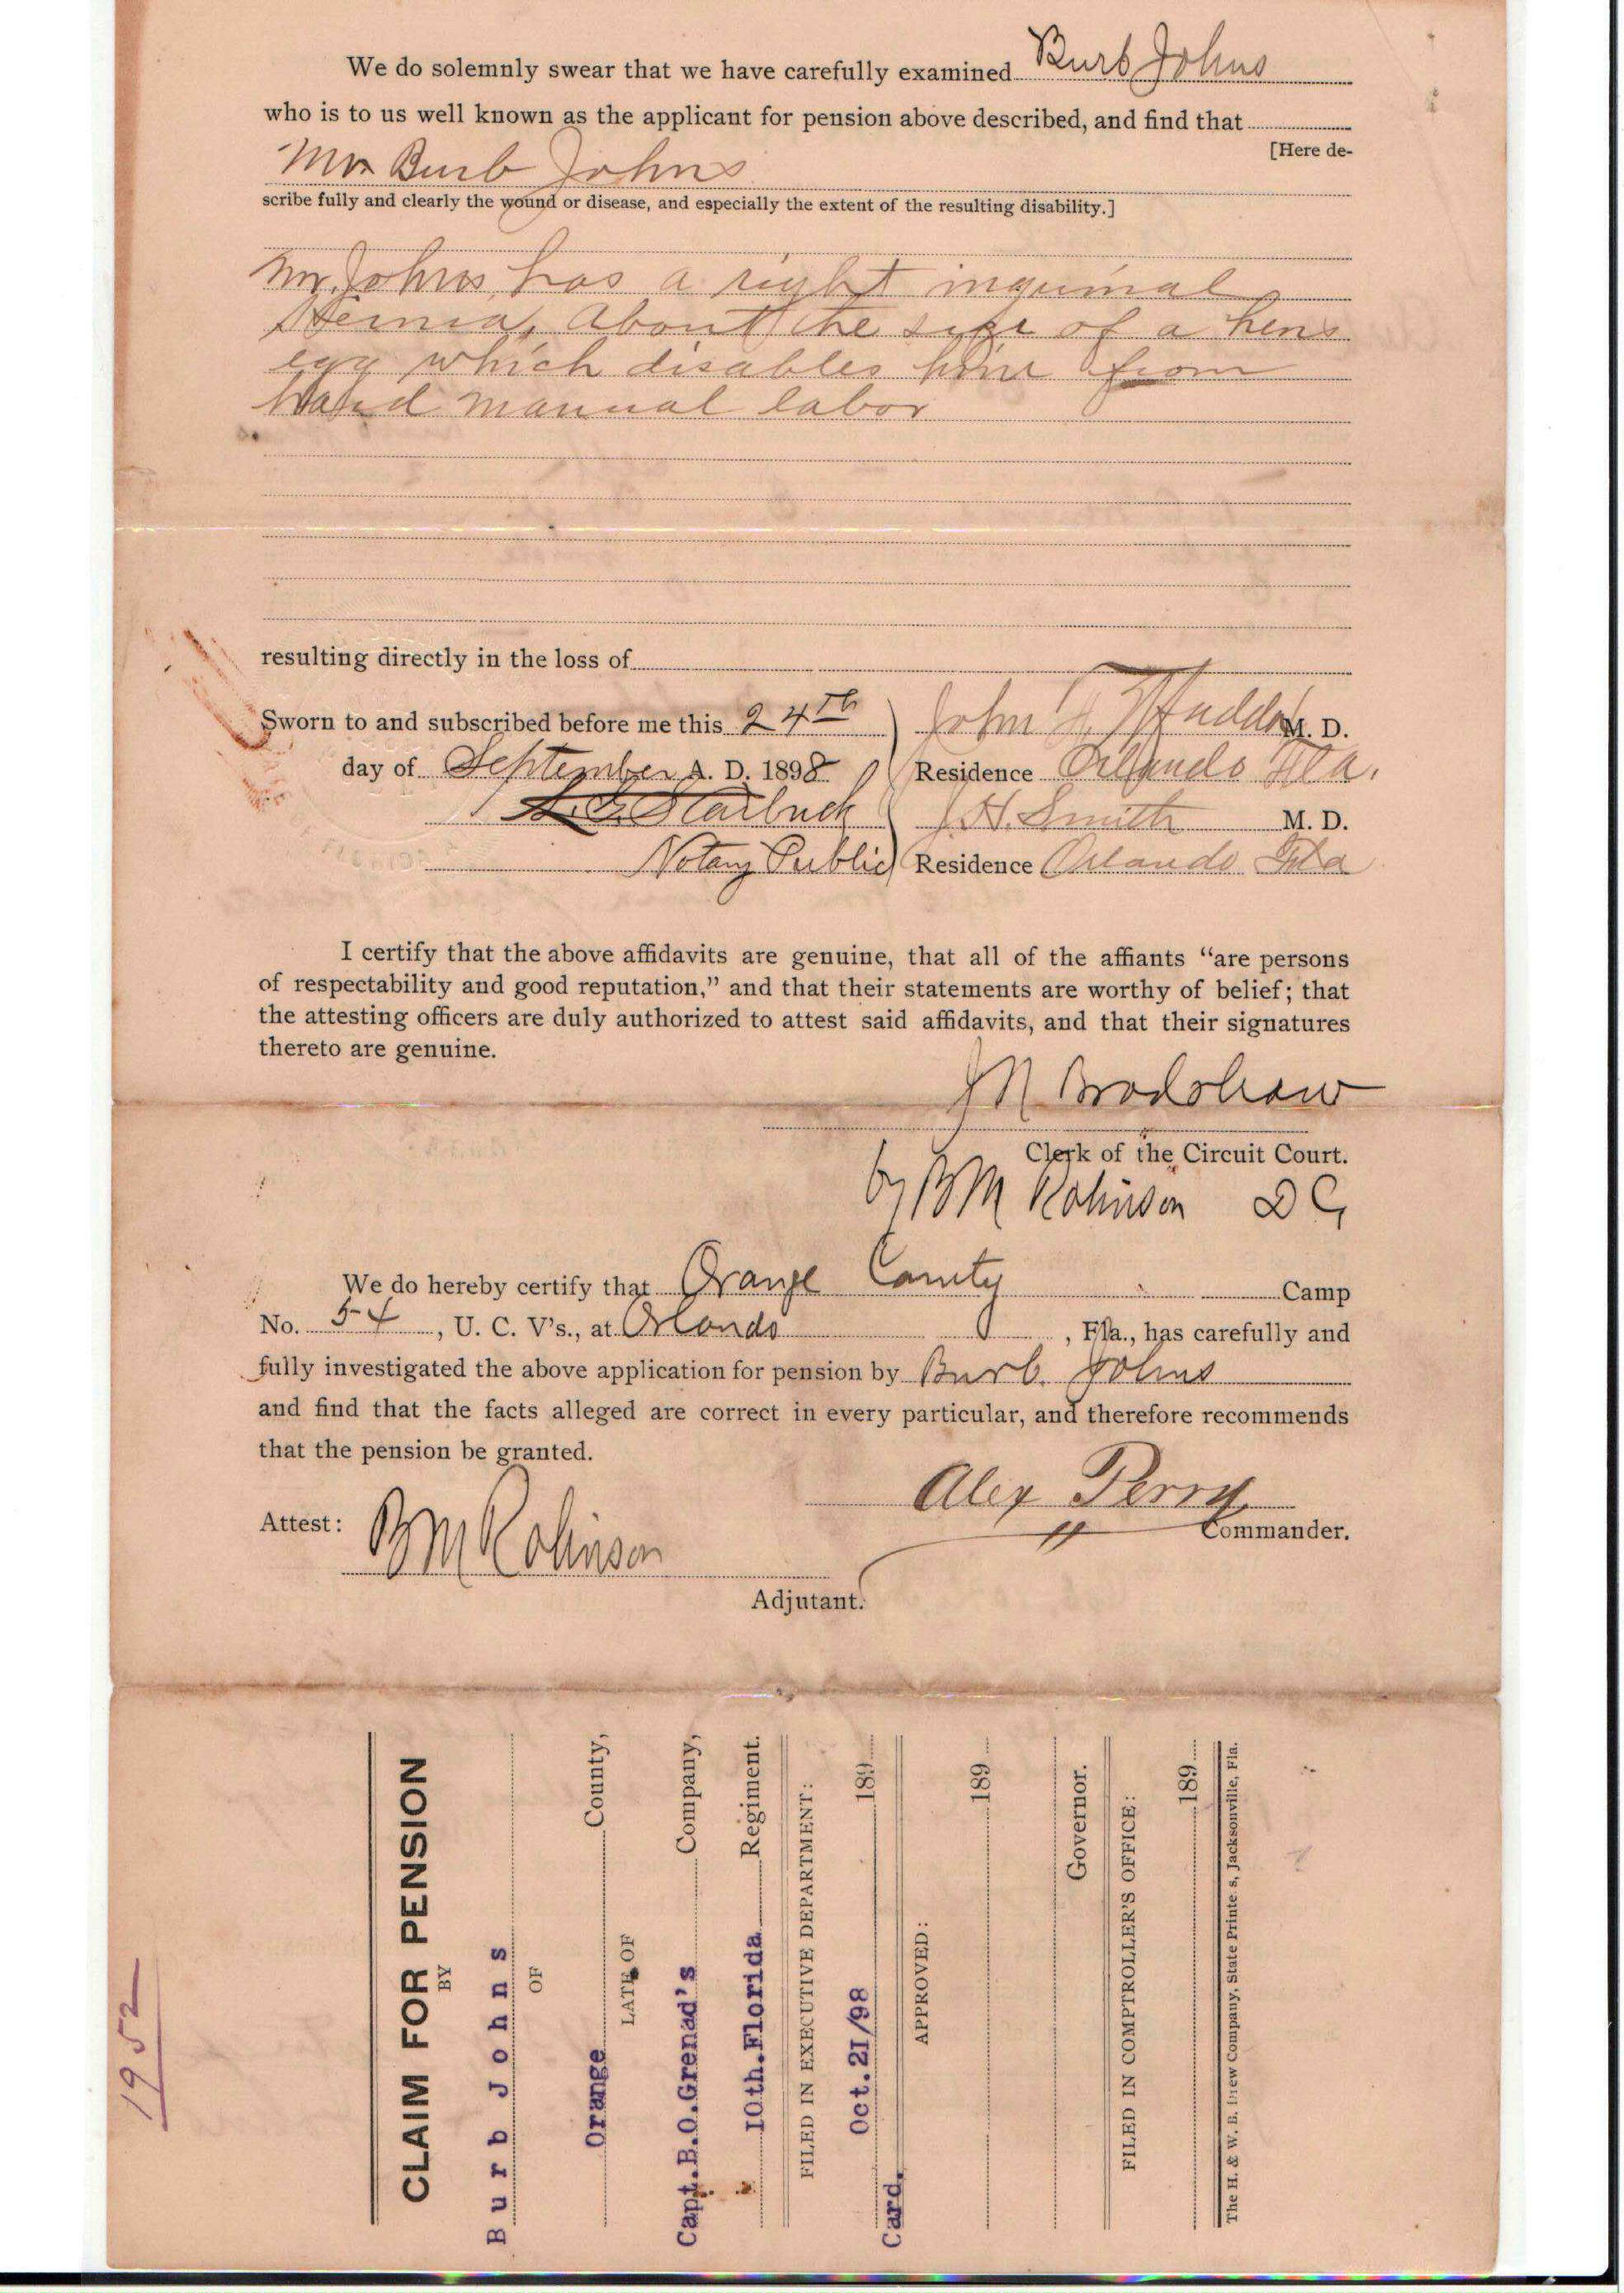 We do solemnly swear that we have carefully examined Burb Johns
who is to us well known as the applicant for pension above described, and find that
[Here de-
Mr Burb Johns
scribe fully and clearly the wound or disease, and especially the extent of the resulting disability.]
Mr. Johns has a right inguinal
Hernia, about the size of a hens
egg which disables him from
hard manual labor
resulting directly in the loss of
Sworn to and subscribed before me this 24th John M. D.
day of September A. D. 1898 Residence Orlando Fla.
Starbuck J. H. Smith M. D.
Notary Public Residence Orlando Fla
I certify that the above affidavits are genuine, that all of the affiants “are persons
of respectability and good reputation,” and that their statements are worthy of belief; that
the attesting officers are duly authorized to attest said affidavits, and that their signatures
thereto are genuine.
J M Bradshaw
Clerk of the Circuit Court.
by B M Robinson D C,
We do hereby certify that Orange County Camp
No. 54, U. C. V's., at Orlando, Fla., has carefully and
fully investigated the above application for pension by Burb. Johns
and find that the facts alleged are correct in every particular, and therefore recommends
that the pension be granted.
Alex Perry
Commander.
Attest: B M Robinson
Adjutant.
1952
CLAIM FOR PENSION
BY
Burb Johns
OF
Orange County,
LATE OF
Capt.B.O.Grenad's Company,
10th.Florida Regiment.
FILED IN EXECUTIVE DEPARTMENT:
Oct.21/98 189
Card.
APPROVED:
189
Governor.
FILED IN COMPTROLLER'S OFFICE:
189
The H. & W. B. Drew Company, State Printe s, Jacksonville, Fla.